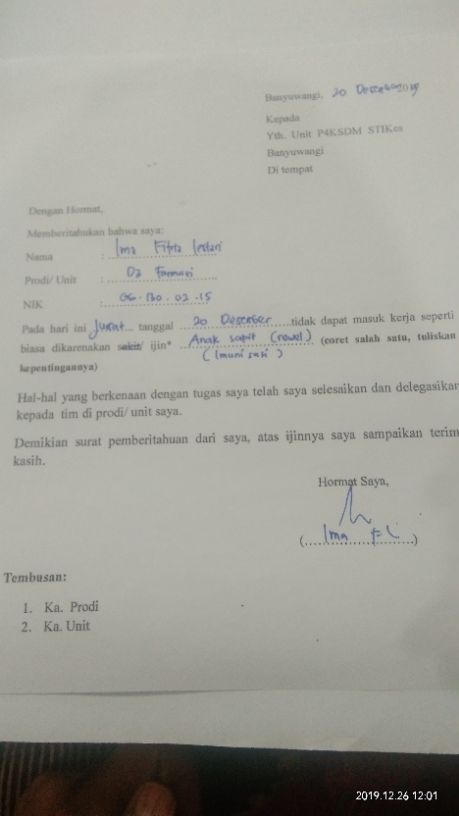 Banyuwangi, 20 December 2019
Kepada
Yth. Unit P4KSDM STIKes
Banyuwangi
Di tempat
Dengan Hormat,
Memberitahukan bahwa saya:
Nama : Ima Fitria Lestari
Prodi/ Unit : D3 Farmasi
NIK : 06.130.02.15
Pada hari ini Jumat tanggal 20 Desember tidak dapat masuk kerja seperti
biasa dikarenakan sakit/ ijin* Anak sakit (rewel) (coret salah satu, tuliskan
(Imunisasi)
kepentingannya)
Hal-hal yang berkenaan dengan tugas saya telah saya selesaikan dan delegasikan
kepada tim di prodi/ unit saya.
Demikian surat pemberitahuan dari saya, atas ijinnya saya sampaikan terim
kasih.
Hormat Saya,
(Ima F L)
Tembusan:
1. Ka. Prodi
2. Ka. Unit
2019.12.26 12:01